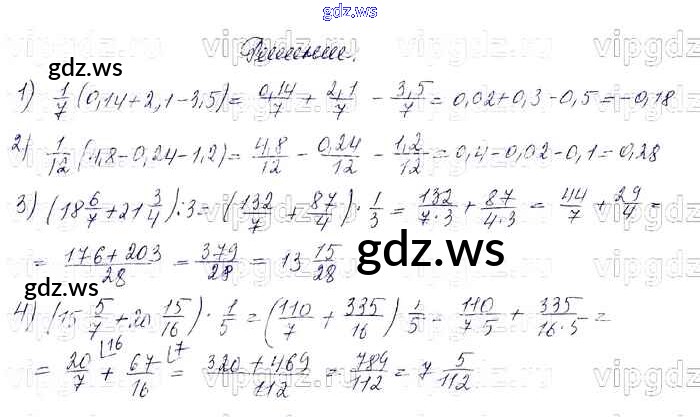 gdz.ws
Решение.
gdz.ws
1) 1/7 (0,14+2,1-3,5)= 0,14/7 + 2,1/7 - 3,5/7 = 0,02+0,3-0,5=-0,18
2) 1/12 (4,8-0,24-1,2)= 4,8/12 - 0,24/12 - 1,2/12 =0,4-0,02-0,1=0,28
3) (18 6/7 + 21 3/4) : 3 = (132/7 + 87/4) · 1/3 = 132/7·3 + 87/4·3 = 44/7 + 29/4 =
= 176+203/28 = 379/28 = 13 15/28
gdz.ws
gdz.ws
4) (15 5/7 + 20 15/16) · 1/5 = (110/7 + 335/16) 1/5 = 110/7·5 + 335/16·5 =
= 20/7 ⌊16 + 67/16 ⌊7 = 320+469/112 = 789/112 = 7 5/112
gdz.ws
gdz.ws